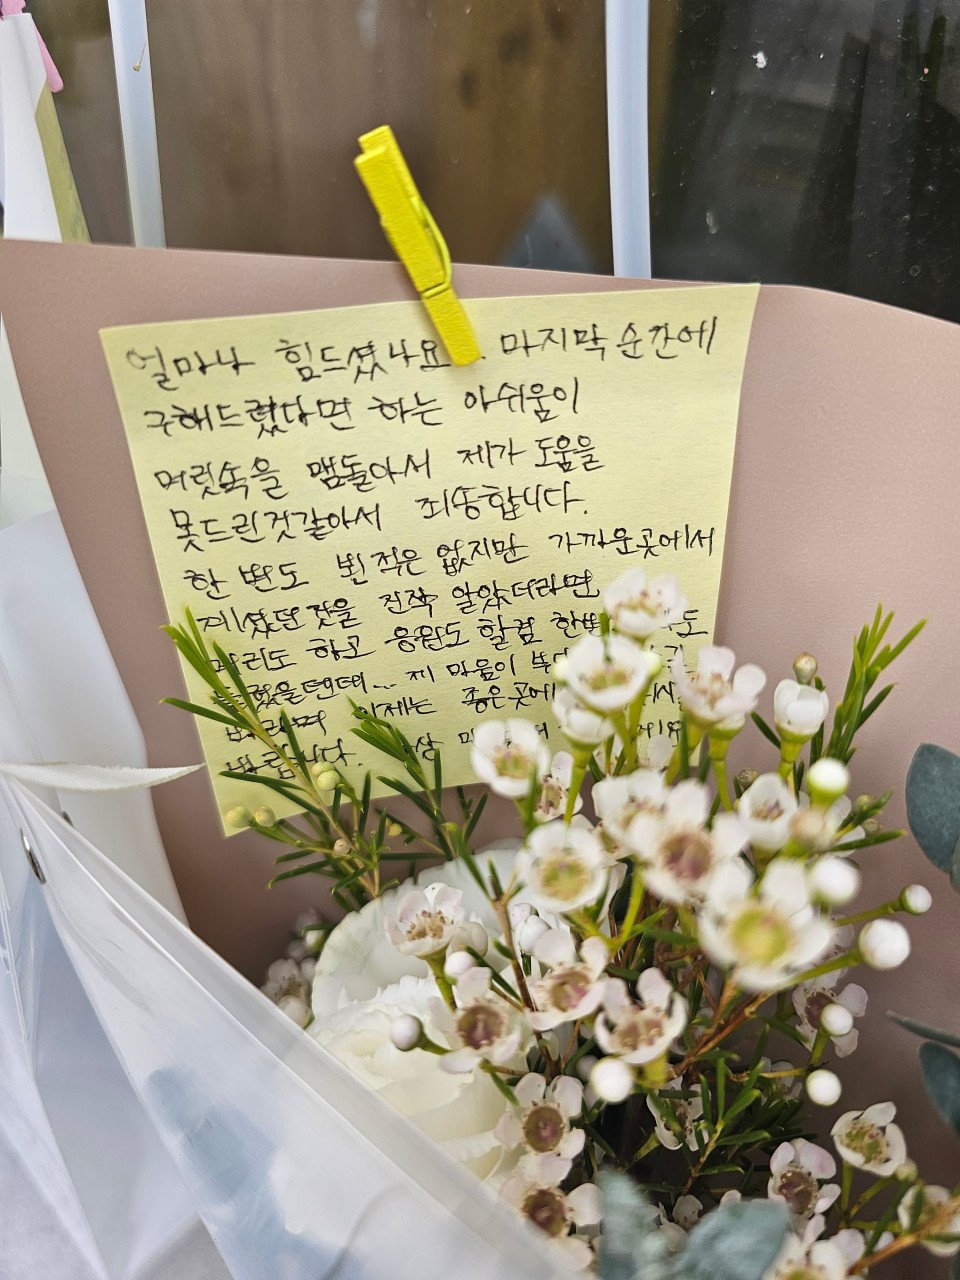 얼마나 힘드셨나요. 마지막 순간에
구해드렸다면 하는 아쉬움이
머릿속을 맴돌아서 제가 도움을
못드린것같아서 죄송합니다.
한 번도 뵌 적은 없지만 가까운곳에서
계셨던것을 진작 알았더라면
말리도 하고 응원도 할겸 한번 도
제 마음이
이제는 좋은곳에
바랍니다.